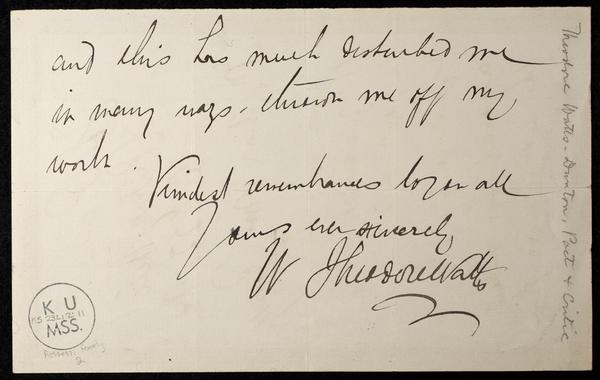 and this has much disturbed me
in many ways - thrown me off my
work.
Kindest remembrances to you all
Yours ever sincerely
W Theodore Watts
Theodore Watts-Dunton, Poet & Critic
K U
MS 23
MSS.
Rossetti Family
2